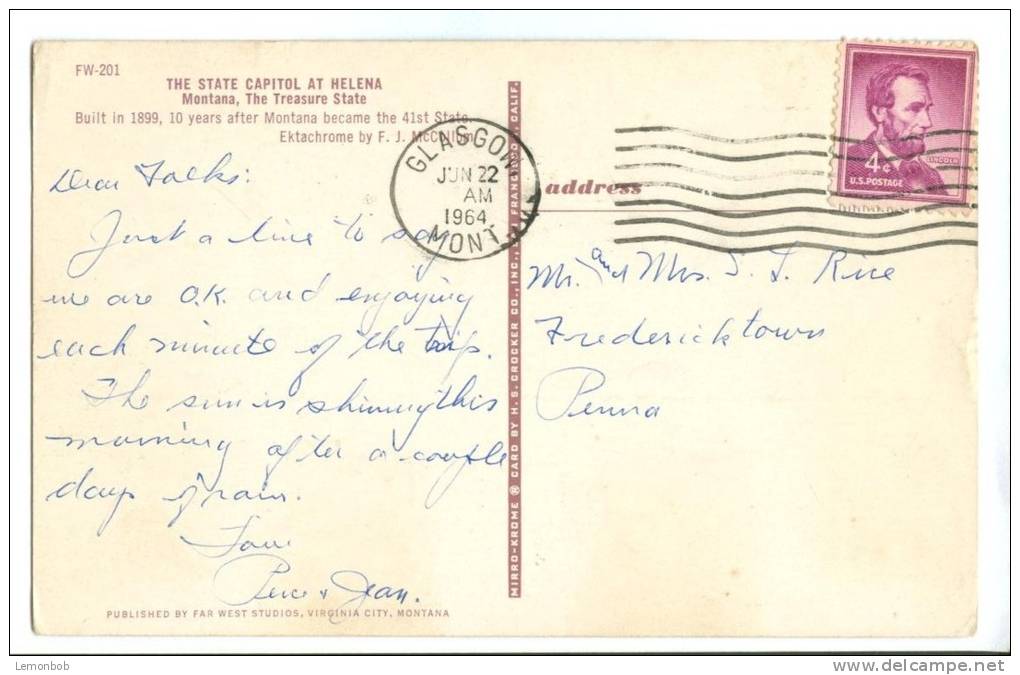 FW-201
THE STATE CAPITOL AT HELENA
Montana, The Treasure State
Built in 1899, 10 years after Montana became the 41st State.
Ektachrome by F. J. McCullum
Dear Folks:
Just a line to say
we are O.K. and enjoying
each minute of the trip.
The sun is shining this
morning after a couple
days of rain.
Love
& Jean.
PUBLISHED BY FAR WEST STUDIOS, VIRGINIA CITY, MONTANA
MIRRO-KROME ® CARD BY H. S. CROCKER CO., INC., FRANCISCO, CALIF.
GLASGOW
JUN 22
AM
1964
MONT.
address
LINCOLN
4¢
U.S. POSTAGE
Mr. and Mrs. Rice
Fredericktown
Penna
Lemonbob
www.delcampe.net